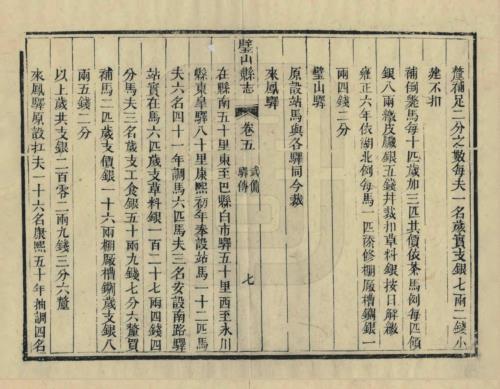 釐補足二分之數每夫一名歲實支銀七兩二錢小
建不扣
補倒斃馬每十匹歲加三匹其價依茶馬例每匹價
銀八兩繳皮臟銀五錢并裁扣草料銀按日解繳
雍正六年依湖北例每馬一匹添修棚廠槽鍘銀一
兩四錢二分
璧山驛
原設站馬與各驛同今裁
來鳳驛
璧山縣志
卷五
武備
驛傳
七
在縣南五十里東至巴縣白市驛五十里西至永川
縣東皐驛八十里康熙初年奉設站馬一十二匹馬
夫六名四十一年調馬六匹馬夫三名安設南路驛
站實在馬六匹歲支草料銀一百二十七兩四錢四
分馬夫三名歲支工食銀五十兩九錢七分六釐買
補馬二匹歲支價銀一十六兩棚廠槽鍘歲支銀八
兩五錢二分
以上歲共支銀二百零二兩九錢三分六釐
來鳳驛原設扛夫一十六名康熙五十年抽調四名